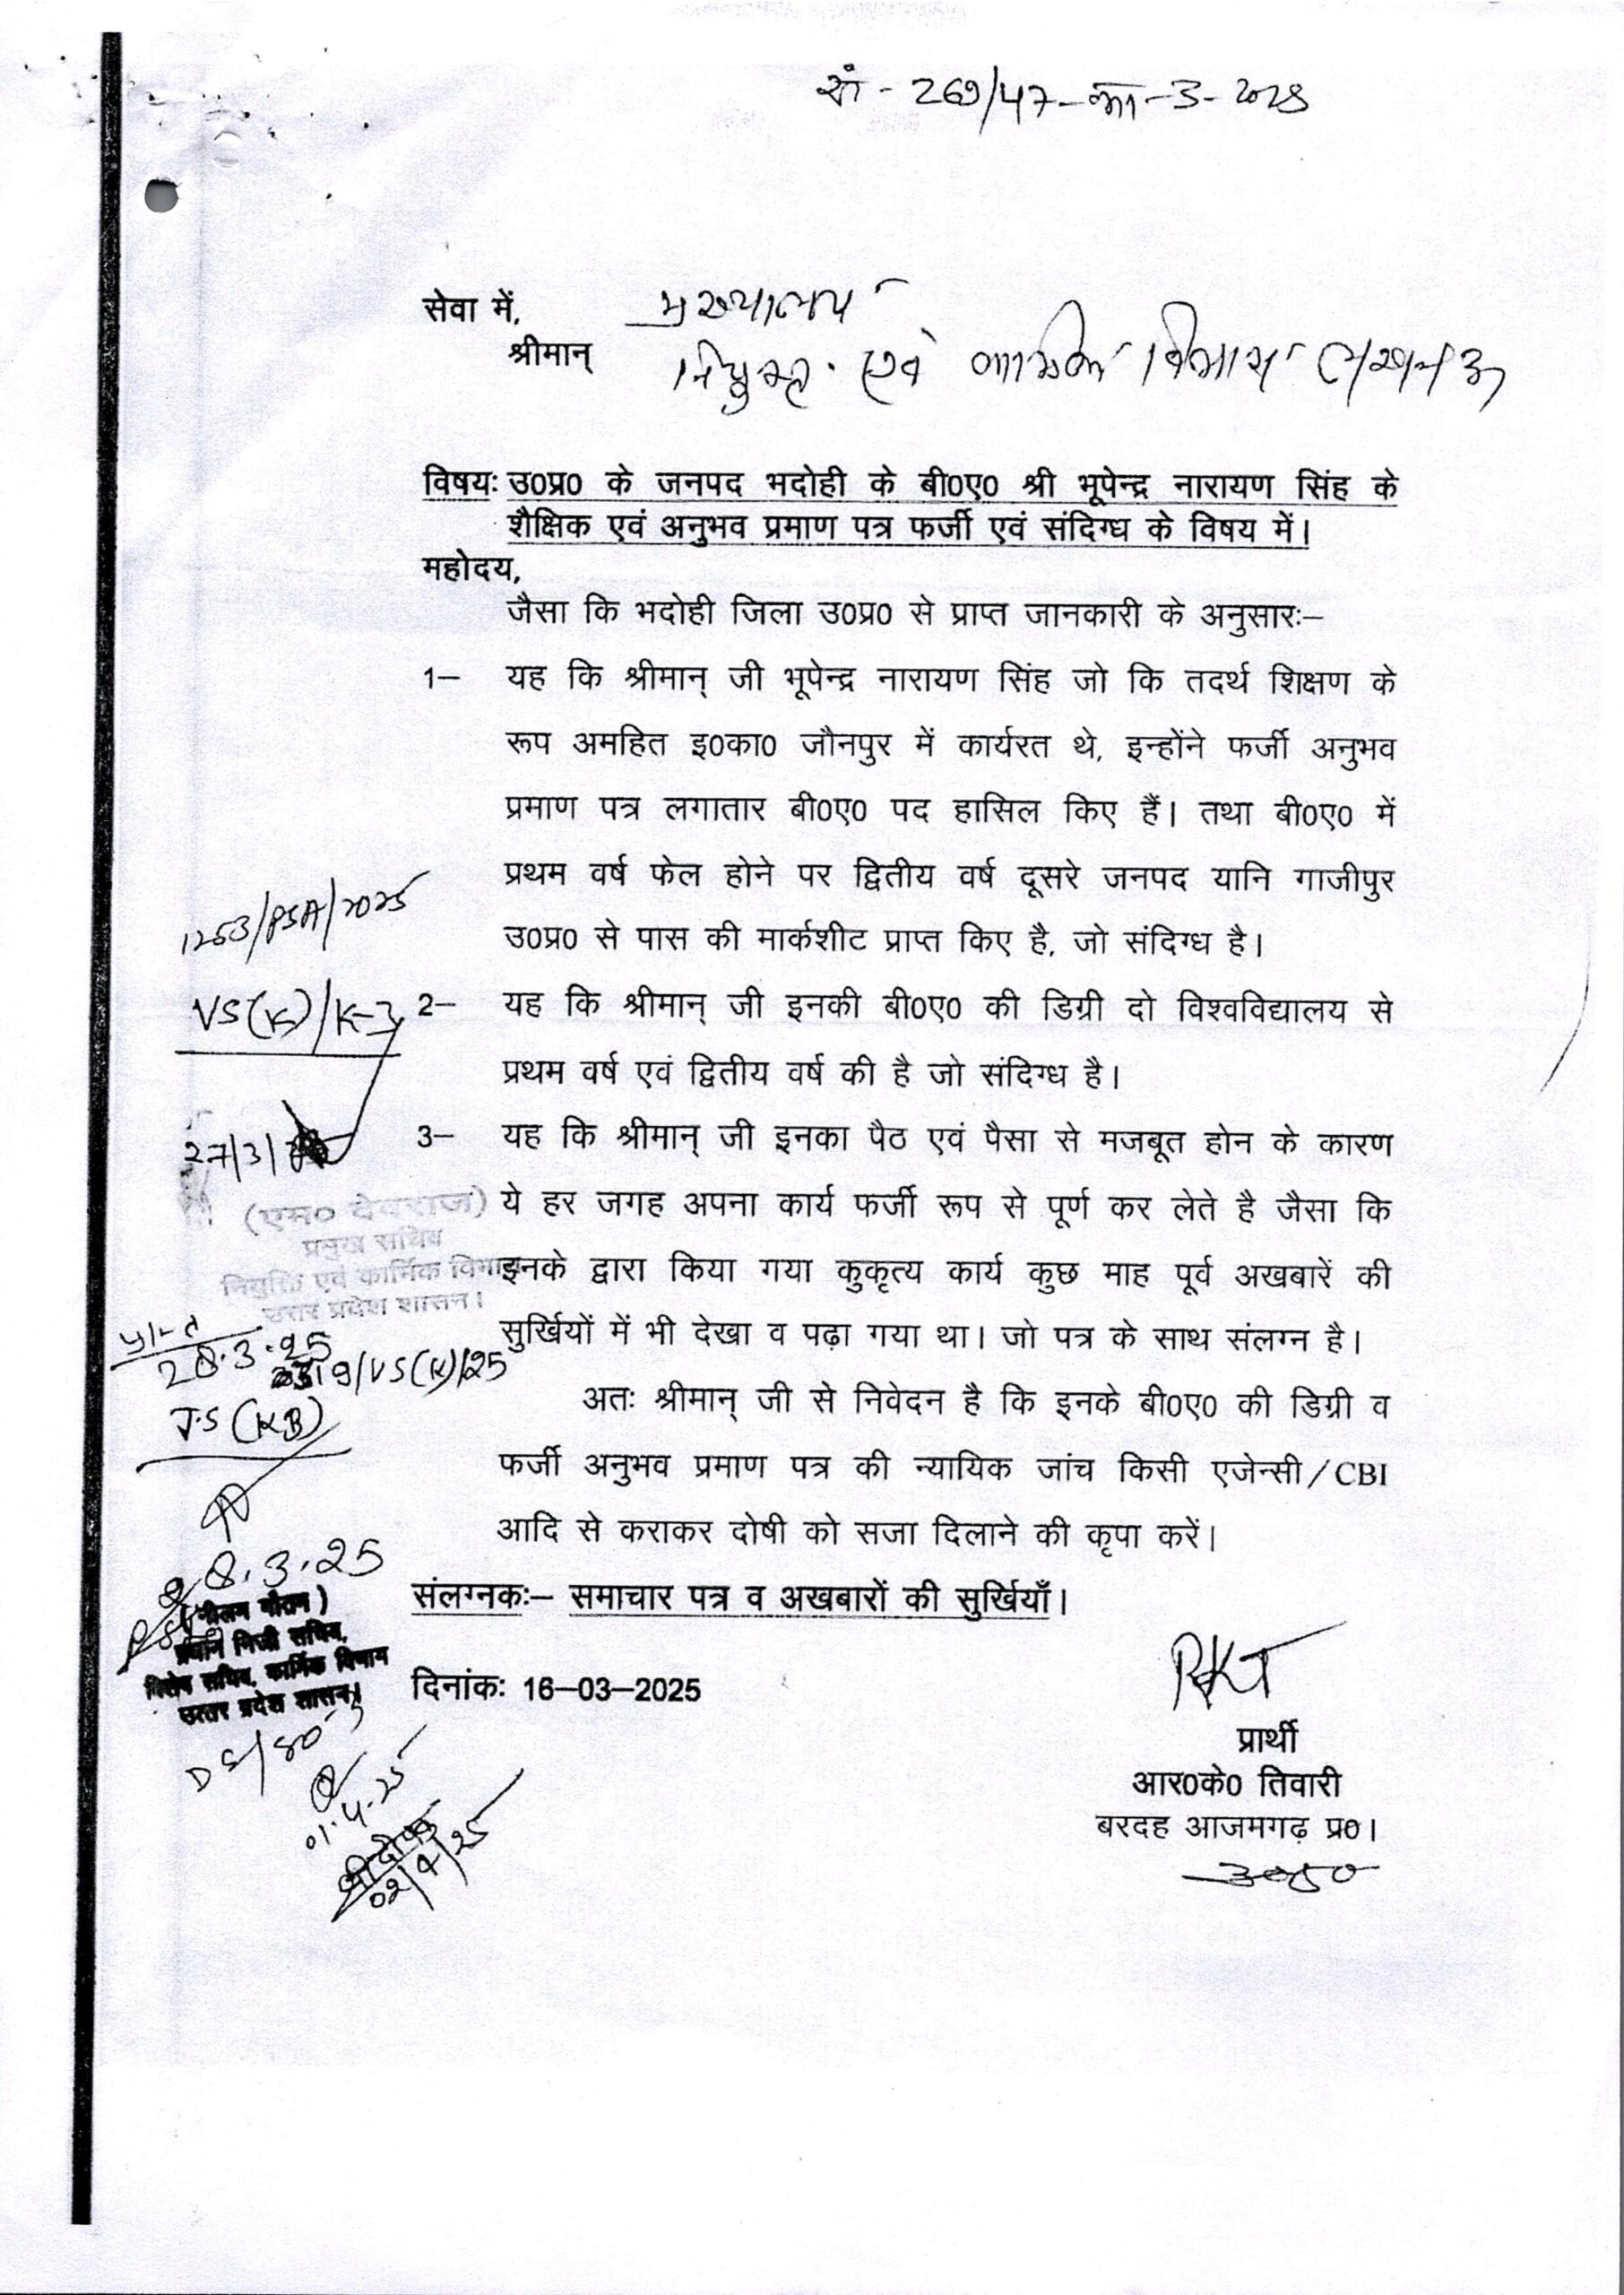 सं - 269/47-का-3-2025
सेवा में, मुख्यालय
श्रीमान् नियुक्त एवं कार्मिक विभाग लखनऊ
विषयः उ0प्र0 के जनपद भदोही के बी0ए0 श्री भूपेन्द्र नारायण सिंह के
शैक्षिक एवं अनुभव प्रमाण पत्र फर्जी एवं संदिग्ध के विषय में।
महोदय,
जैसा कि भदोही जिला उ0प्र0 से प्राप्त जानकारी के अनुसारः–
1– यह कि श्रीमान् जी भूपेन्द्र नारायण सिंह जो कि तदर्थ शिक्षण के
रूप अमहित इ0का0 जौनपुर में कार्यरत थे, इन्होंने फर्जी अनुभव
प्रमाण पत्र लगातार बी0ए0 पद हासिल किए हैं। तथा बी0ए0 में
प्रथम वर्ष फेल होने पर द्वितीय वर्ष दूसरे जनपद यानि गाजीपुर
उ0प्र0 से पास की मार्कशीट प्राप्त किए है, जो संदिग्ध है।
2– यह कि श्रीमान् जी इनकी बी0ए0 की डिग्री दो विश्वविद्यालय से
प्रथम वर्ष एवं द्वितीय वर्ष की है जो संदिग्ध है।
3– यह कि श्रीमान् जी इनका पैठ एवं पैसा से मजबूत होन के कारण
ये हर जगह अपना कार्य फर्जी रूप से पूर्ण कर लेते है जैसा कि
इनके द्वारा किया गया कुकृत्य कार्य कुछ माह पूर्व अखबारें की
सुर्खियों में भी देखा व पढ़ा गया था। जो पत्र के साथ संलग्न है।
अतः श्रीमान् जी से निवेदन है कि इनके बी0ए0 की डिग्री व
फर्जी अनुभव प्रमाण पत्र की न्यायिक जांच किसी एजेन्सी/CBI
आदि से कराकर दोषी को सजा दिलाने की कृपा करें।
संलग्नकः– समाचार पत्र व अखबारों की सुर्खियाँ।
दिनांकः 16–03–2025
RKT
प्रार्थी
आर0के0 तिवारी
बरदह आजमगढ़ प्र0।
1253/PSA/2025
VS(K)/K-3
27/3/
(एम0 देवराज)
प्रमुख सचिव
नियुक्ति एवं कार्मिक विभाग
उत्तर प्रदेश शासन।
28.3.25
/VS(K)/25
J.S (KB)
28.3.25
(नीलम गौतम)
प्रधान निजी सचिव,
विशेष सचिव, कार्मिक विभाग
उत्तर प्रदेश शासन।
01.4.25
02/4/25